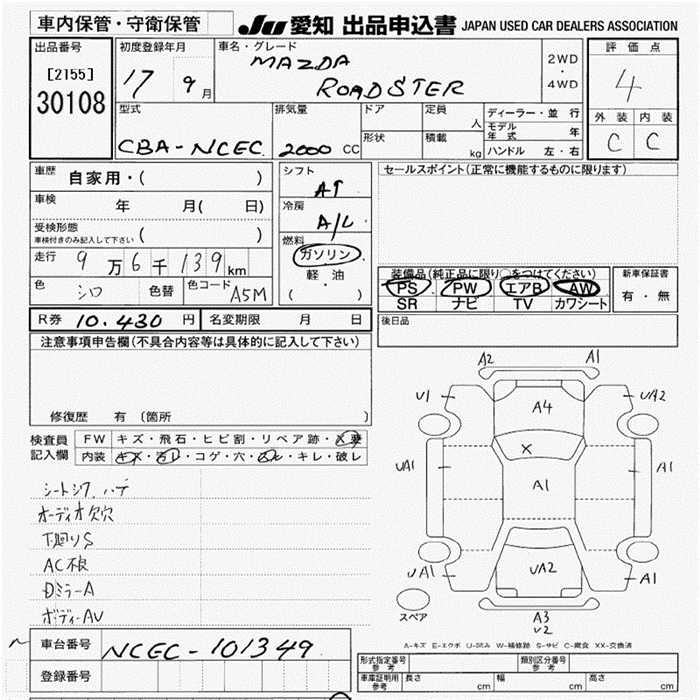 車内保管・守衛保管 JU 愛知 出品申込書 JAPAN USED CAR DEALERS ASSOCIATION
出品番号
[2155]
30108
初度登録年月
17 9月
車名・グレード
MAZDA
ROADSTER
2WD
・
4WD
評価点
4
外装 内装
C C
型式
CBA-NCEC
排気量
2000 CC
ドア
形状
定員
人
積載
kg
ディーラー・並行
モデル年式 年
ハンドル 左・右
車歴 自家用・( )
車検 年 月( 日)
受検形態
車検付きのみ記入して下さい ( )
走行 9万6千139km
色 シロ 色替 色コード A5M
シフト
AT
冷房
A/C
燃料
ガソリン
軽油
( )
セールスポイント(正常に機能するものに限ります)
装備品(純正品に限り○をつけてください)
PS PW エアB AW
SR ナビ TV カワシート
新車保証書
有・無
R券 10.430円 名変期限 月 日
後日品
注意事項申告欄(不具合内容等は具体的に記入して下さい)
修復歴 有 (箇所 )
検査員
記入欄
FW キズ・飛石・ヒビ割・リペア跡・X要
内装 キズ・汚レ・コゲ・穴・スレ・キレ・破レ
シートシワ.ハデ
オーディオ欠穴
下廻りS
AC不良
DミラーA
ボディーAU
A2 A1
U1 A4 UA2
X
UA1 A1 A1
UA1 UA2 A1
スペア
A3
U2
A-キズ E-エクボ U-凹み W-補修跡 S-サビ C-腐食 XX-交換済
車台番号 NCEC-101349
登録番号
型式指定番号
参考
類別区分番号
参考
車庫証明用
参考
長さ cm 幅 cm 高さ cm